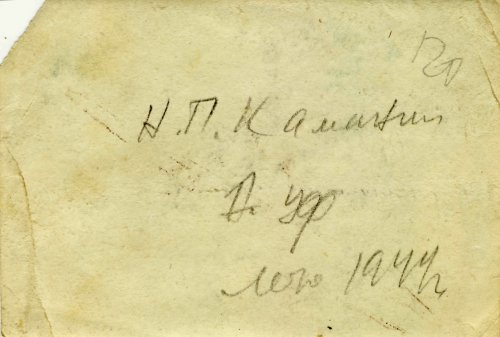 120
Н.П. Каманин
2 УФ
Лето 1944г